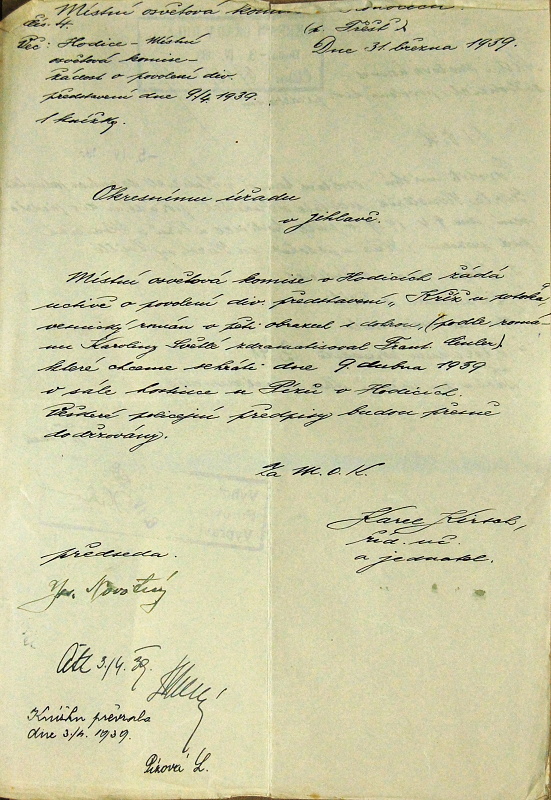 Místní osvětová komise
Čís. 4.
(p. Třešť)
Dne 31. března 1939.
Věc: Hodice - Místní
osvětová komise -
žádost o povolení div.
představení dne 9/4. 1939.
1 knížka.
Okresnímu úřadu
v Jihlavě.
Místní osvětová komise v Hodicích žádá
uctivě o povolení div. představení „Kříž u potoka
vesnický román v pěti obrazech s dohrou, (podle romá-
nu Karoliny Světlé zdramatisoval Frant.
které chceme sehráti dne 9. dubna 1939
v sále hostince u Pízů v Hodicích.
Veškeré policejní předpisy budou přesně
dodržovány.
Za M. O. K.
Karel
říd. uč.
a jednatel.
předseda.
Novotný
3./4. 39.
Knížku převzala
dne 3./4. 1939.
Pízová L.